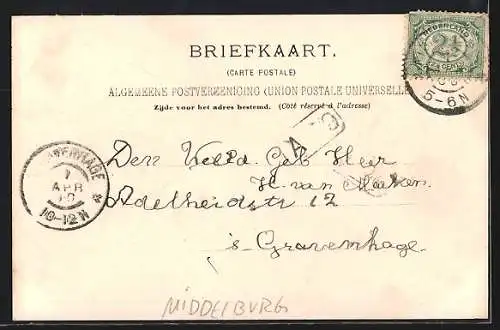 BRIEFKAART.
(CARTE POSTALE)
ALGEMEENE POSTVEREENIGING (UNION POSTALE UNIVERSELLE)
Zijde voor het adres bestemd. (Côté réservé à l'adresse)
NEDERLAND
2½
5-6N
A
APR
10-12N
Den Heer
H. van
Adelheidstr 12
's Gravenhage.
MIDDELBURG